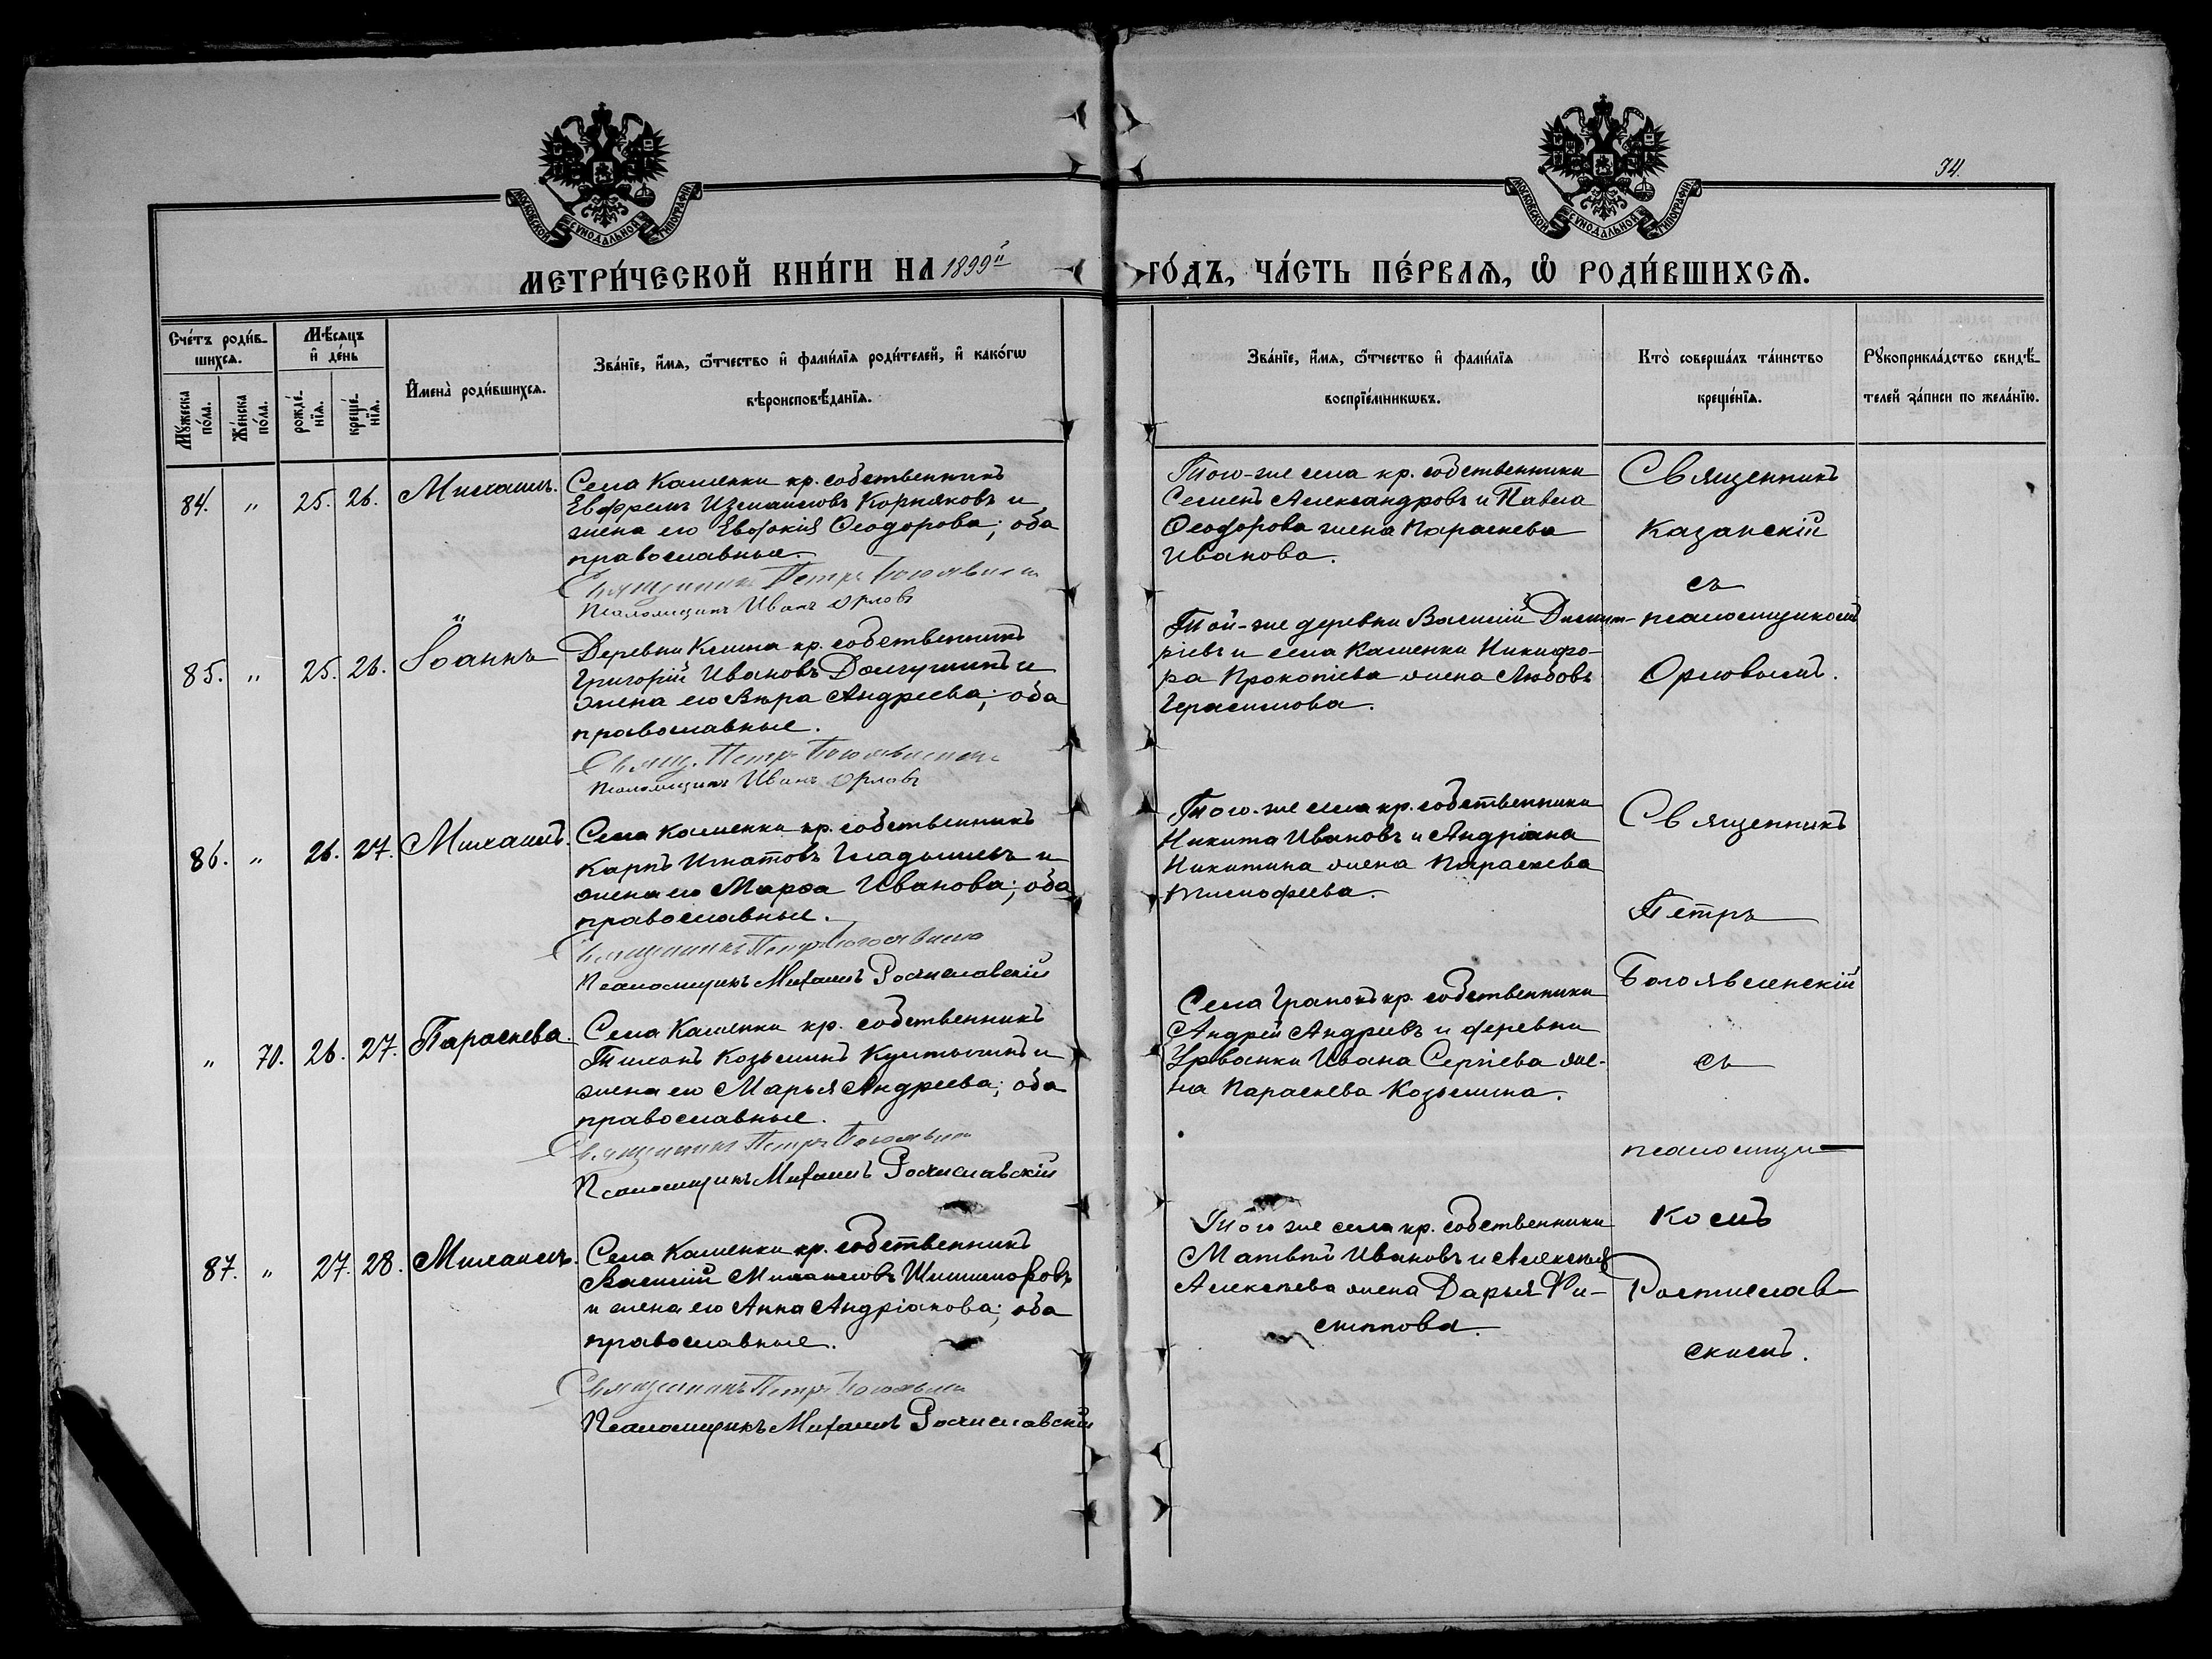 МОСКОВСКОЙ СѴНОДАЛЬНОЙ ТИПОГРАФІИ
МОСКОВСКОЙ СѴНОДАЛЬНОЙ ТИПОГРАФІИ
34.
МЕТРИ́ЧЕСКОЙ КНИ́ГИ НА 1899й ГО́ДЪ, ЧА́СТЬ ПЕ́РВАѦ, Ѡ РОДИ́ВШИХСѦ.
Сче́тъ роди́в-
шихсѧ.
Мѣ́сѧцъ
и҆ де́нь
И҆мена̀ роди́вшихсѧ.
Зва́нїе, и҆́мѧ, ѻ҆́тчество и҆ фами́лїѧ роди́телей, и҆ како́гѡ
вѣроисповѣ́данїѧ.
Мꙋ́жеска
по́ла.
Же́нска
по́ла.
рожде́-
нїѧ.
креще́-
нїѧ.
Зва́нїе, и҆́мѧ, ѻ҆́тчество и҆ фами́лїѧ
воспрїе́мникѡвъ.
Кто̀ соверша́лъ та́инство
креще́нїѧ.
Рꙋкоприкла́дство свидѣ́-
телей за́писи по жела́нїю.
84. " 25. 26. Михаилъ.
Села Каменки кр. собственникъ
Ефремъ Измаиловъ Корняковъ и
жена его Евдокія Ѳеодорова; оба
православные.
Священникъ Петръ
Псаломщикъ Иванъ Орловъ
Того-же села кр. собственники
Семенъ Александровъ и Павла
Ѳеодорова жена Параскева
Иванова.
Священникъ
Казанскій
съ
псаломщикомъ
Орловымъ.
85. " 25. 26. Іоаннъ
Деревни кр. собственникъ
Григорій Ивановъ Долгушинъ и
жена его Вѣра Андреева; оба
православные.
Свящ. Петръ
Псаломщикъ Иванъ Орловъ
Той-же деревни Василій Димит-
ріевъ и села Каменки Никифо-
ра Прокопіева жена Любовь
Герасимова.
86. " 26. 27. Михаилъ.
Села Каменки кр. собственникъ
Карпъ Игнатовъ Гладышевъ и
жена его Марѳа Иванова; оба
православные.
Священникъ Петръ
Псаломщикъ Михаилъ Ростиславскій
Того-же села кр. собственники
Никита Ивановъ и Андріана
Никитина жена Параскева
Тимофеева.
Священникъ
Петръ
Богоявленскій
съ
псаломщи-
комъ
Ростислав-
скимъ.
" 70. 26. 27. Параскева.
Села Каменки кр. собственникъ
Тихонъ Козьминъ и
жена его Марья Андреева; оба
православные.
Священникъ Петръ
Псаломщикъ Михаилъ Ростиславскій
Села кр. собственники
Андрей Андреевъ и деревни
Урванки Ивана Сергіева же-
на Параскева Козьмина.
87. " 27. 28. Михаилъ.
Села Каменки кр. собственникъ
Василій Михаиловъ
и жена его Анна Андріанова; оба
православные.
Священникъ Петръ
Псаломщикъ Михаилъ Ростиславскій
Того же села кр. собственники
Матвѣй Ивановъ и Алексѣя
Алексѣева жена Дарья Фи-
липпова.